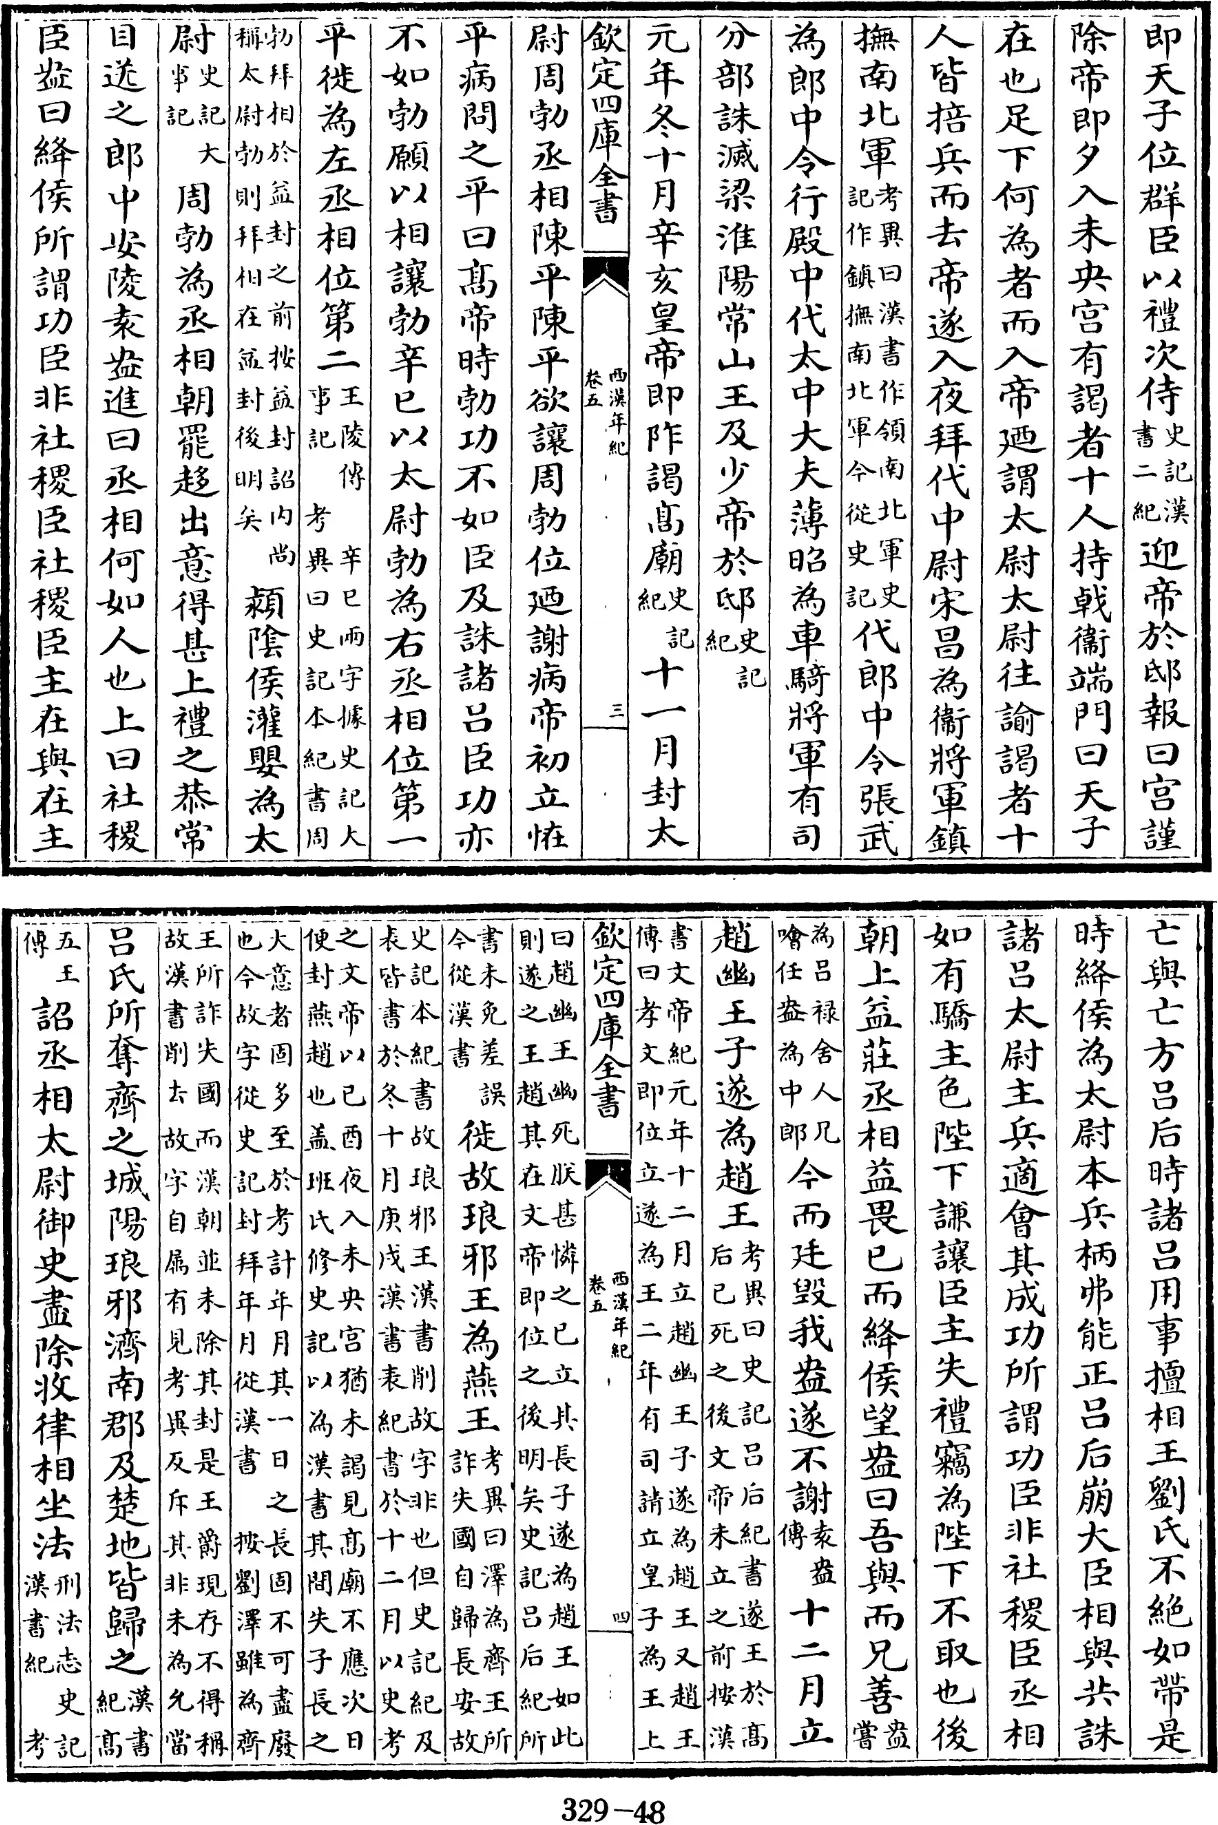 即天子位群臣以禮次侍史記漢書二紀迎帝於邸報曰宮謹
除帝即夕入未央宮有謁者十人持戟衞端門曰天子
在也足下何為者而入帝廼謂太尉太尉往諭謁者十
人皆掊兵而去帝遂入夜拜代中尉宋昌為衞將軍鎮
撫南北軍考異曰漢書作領南北軍史記作鎮撫南北軍今從史記代郎中令張武
為郎中令行殿中代太中大夫薄昭為車騎將軍有司
分部誅滅梁淮陽常山王及少帝於邸史記紀
元年冬十月辛亥皇帝即阼謁高廟史記紀十一月封太
欽定四庫全書 西漢年紀卷五 三
尉周勃丞相陳平陳平欲讓周勃位廼謝病帝初立恠
平病問之平曰高帝時勃功不如臣及誅諸吕臣功亦
不如勃願以相讓勃辛巳以太尉勃為右丞相位第一
平徙為左丞相位第二王陵傳 辛巳兩字據史記大事記 考異曰史記本紀書周
勃拜相於益封之前按益封詔内尚稱太尉勃則拜相在益封後明矣 潁隂侯灌嬰為太
尉史記大事記 周勃為丞相朝罷趨出意得甚上禮之恭常
目送之郎中安陵袁盎進曰丞相何如人也上曰社稷
臣盎曰絳侯所謂功臣非社稷臣社稷臣主在與在主
亡與亡方吕后時諸吕用事擅相王劉氏不絶如帶是
時絳侯為太尉本兵柄弗能正吕后崩大臣相與共誅
諸吕太尉主兵適會其成功所謂功臣非社稷臣丞相
如有驕主色陛下謙讓臣主失禮竊為陛下不取也後
朝上益莊丞相益畏已而絳侯望盎曰吾與而兄善盎嘗
為吕禄舍人兄噲任盎為中郎今而廷毀我盎遂不謝袁盎傳十二月立
趙幽王子遂為趙王考異曰史記吕后紀書遂王於高后已死之後文帝未立之前按漢
書文帝紀元年十二月立趙幽王子遂為趙王又趙王傳曰孝文即位立遂為王二年有司請立皇子為王上
欽定四庫全書 西漢年紀卷五 四
曰趙幽王幽死朕甚憐之已立其長子遂為趙王如此則遂之王趙其在文帝即位之後明矣史記吕后紀所
書未免差誤今從漢書 徙故琅邪王為燕王考異曰澤為齊王所詐失國自歸長安故
史記本紀書故琅邪王漢書削故字非也但史記紀及表皆書於冬十月庚戌漢書表紀書於十二月以史考
之文帝以己酉夜入未央宮猶未謁見高廟不應次日便封燕趙也盖班氏修史記以為漢書其間失子長之
大意者固多至於考計年月其一日之長固不可盡廢也今故字從史記封拜年月從漢書 按劉澤雖為齊
王所詐失國而漢朝並未除其封是王爵現存不得稱故漢書削去故字自屬有見考異反斥其非未為允當
吕氏所奪齊之城陽琅邪濟南郡及楚地皆歸之漢書紀高
五王傳 詔丞相太尉御史盡除收律相坐法刑法志史記漢書紀 考
329-48